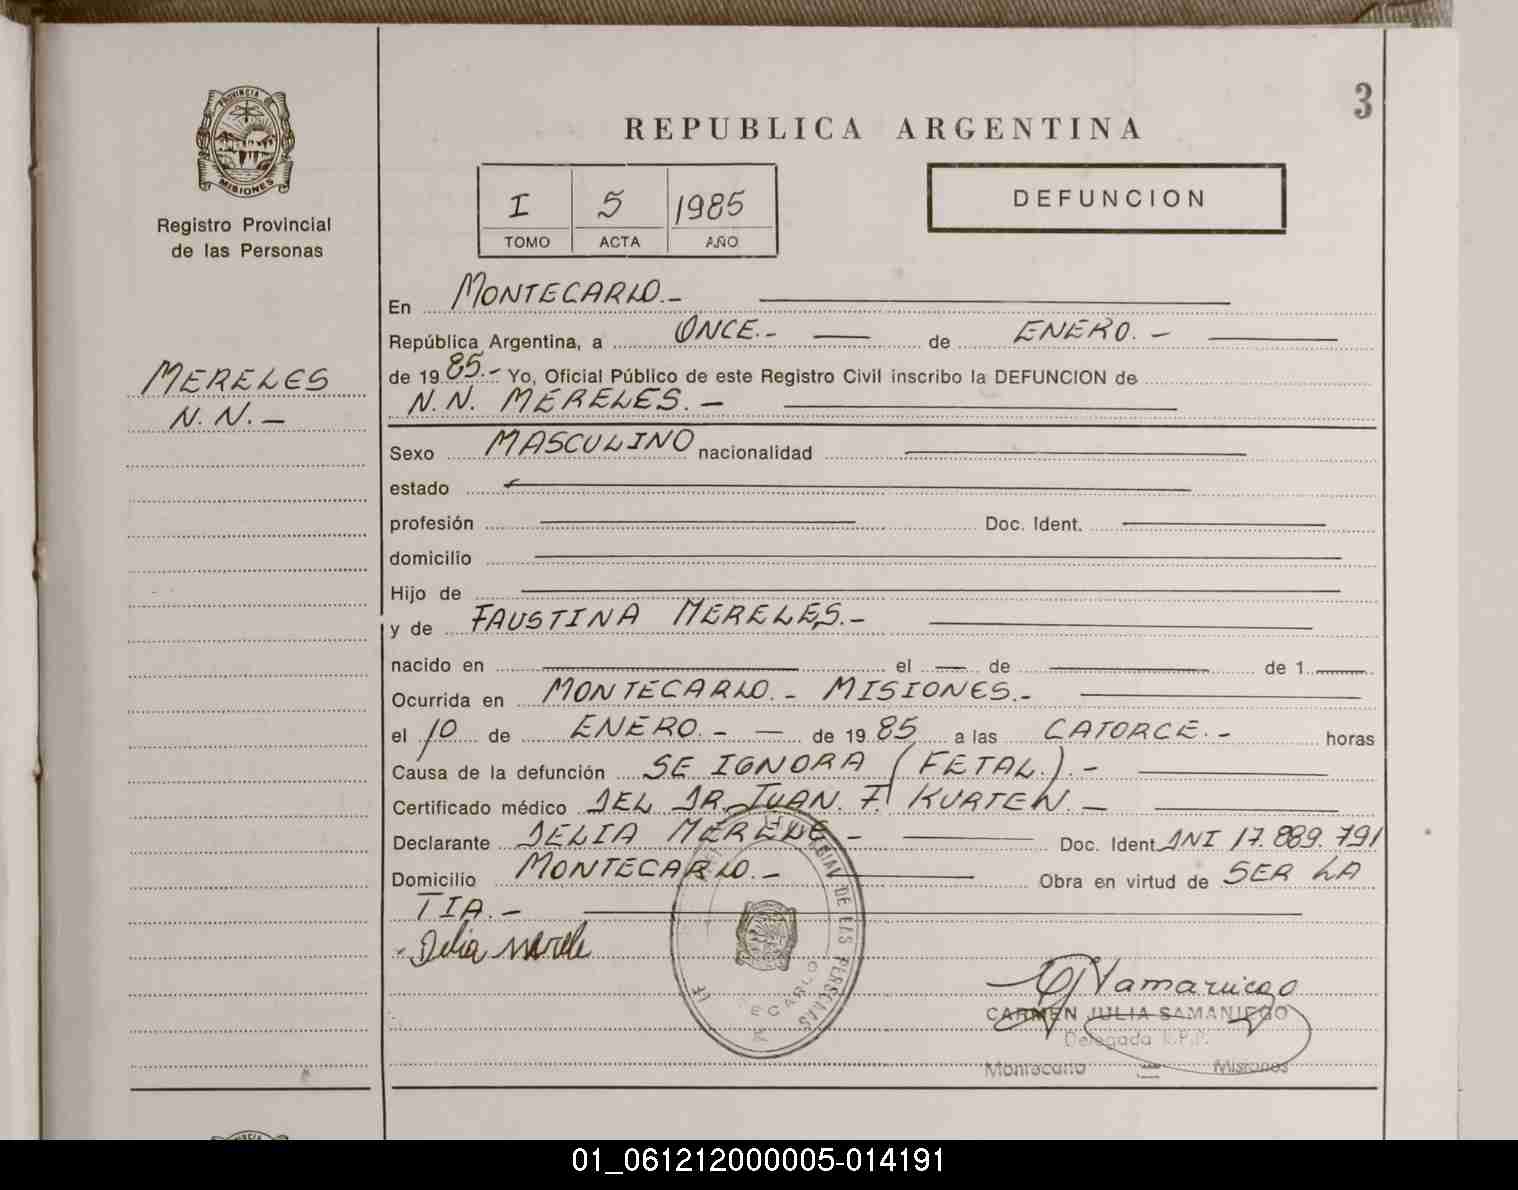 3
PROVINCIA DE
MISIONES
Registro Provincial
de las Personas
REPUBLICA ARGENTINA
I 5 1985
TOMO ACTA AÑO
DEFUNCION
MERELES
N.N.-
En MONTECARLO.-
República Argentina, a ONCE.- de ENERO.-
de 1985.- Yo, Oficial Público de este Registro Civil inscribo la DEFUNCION de
N.N. MERELES.-
Sexo MASCULINO nacionalidad
estado
profesión Doc. Ident.
domicilio
Hijo de
y de FAUSTINA MERELES.-
nacido en el de de 1
Ocurrida en MONTECARLO.- MISIONES.-
el 10 de ENERO.- de 1985 a las CATORCE.- horas
Causa de la defunción SE IGNORA (FETAL).-
Certificado médico DEL DR. JUAN. F. KURTEN.-
Declarante DELIA MERELE- Doc. Ident. DNI 17.889.791
Domicilio MONTECARLO.- Obra en virtud de SER LA
TIA.-
Delia Merele
DE LAS PERSONAS
CJSamaniego
CARMEN JULIA SAMANIEGO
Delegada R.P.P.
Montecarlo Misiones
01_061212000005-014191